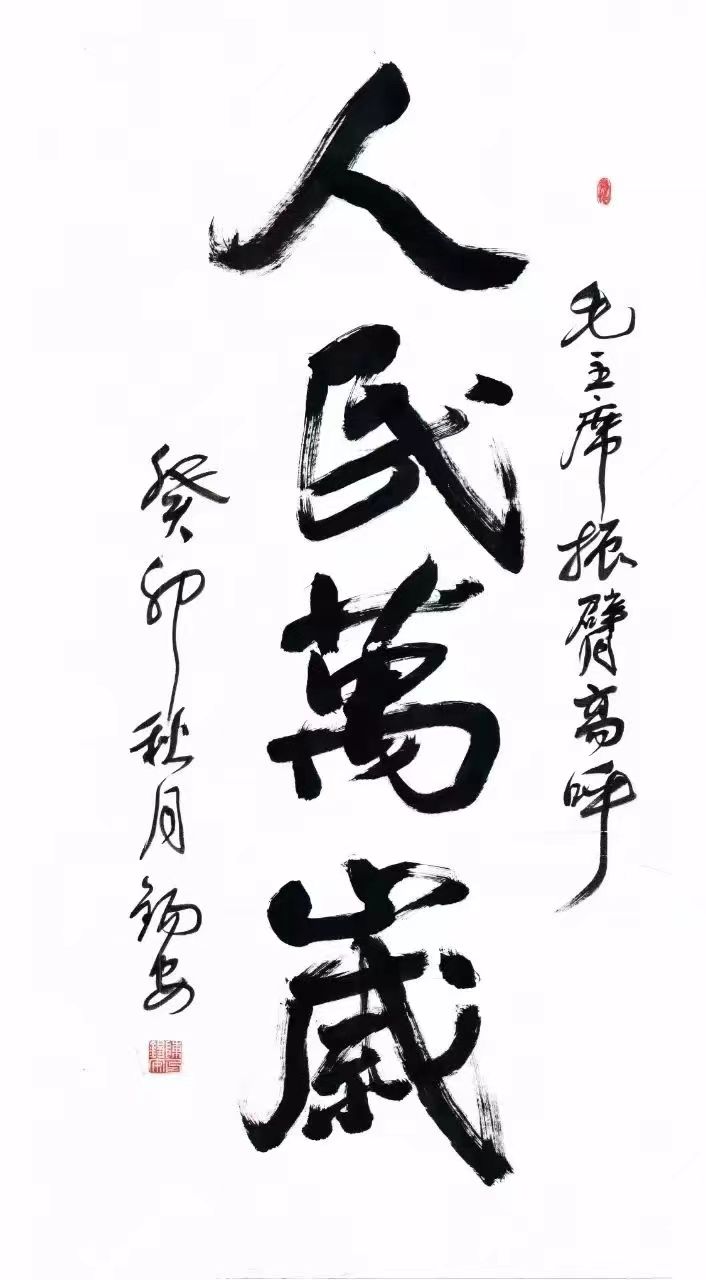 毛主席振臂高呼
人民萬歲
癸卯秋月錫安